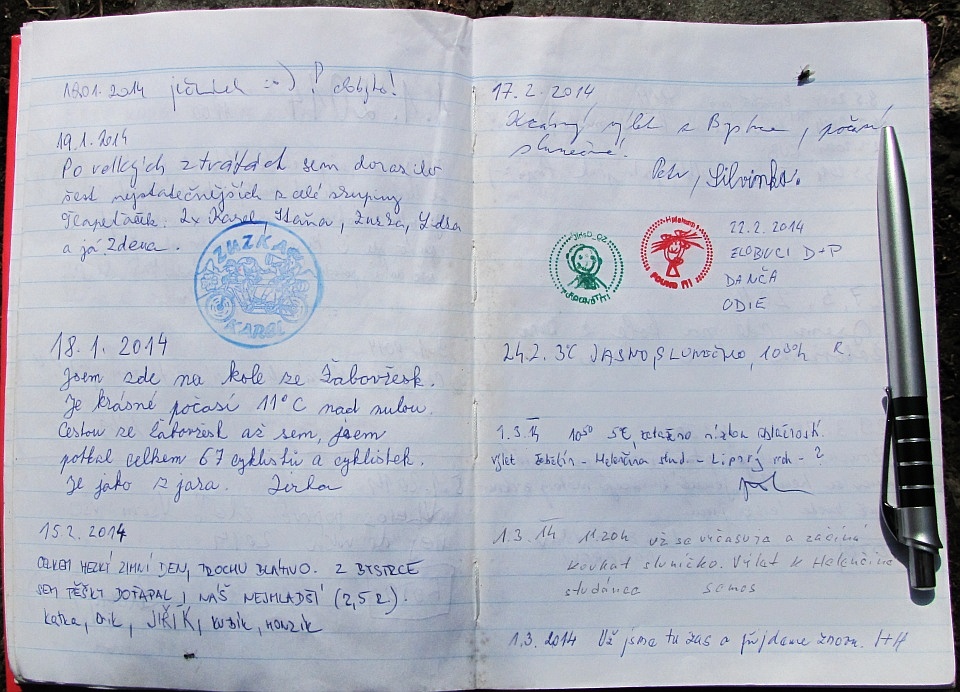 19.01.2014 jičínbek :-) !
19.1.2014
Po velkých ztrátách sem dorazilo
šest nejstatečnějších z celé skupiny
2x Karel, Hana, Zuzka,
a já Zdena.
ZUZKA
KAREL
18. 1. 2014
Jsem zde na kole ze Žabovřesk.
Je krásné počasí 11°C nad nulou.
Cestou ze Žabovřesk až sem, jsem
potkal celkem 67 cyklistů a cyklistek.
Je jako z jara. Jirka
15.2. 2014
CELKEM HEZKÝ ZIMNÍ DEN, TROCHU BLÁTIVO. Z BYSTRCE
SEM PĚŠKY DOŤAPAL I NÁŠ NEJMLADŠÍ (2,5 R.).
Katka, Erik, JIŘÍK, KUBÍK, HONZÍK
17. 2. 2014
Krásný výlet z Bystrce, počasí
slunečné.
Petr, Silvinka.
22.2.2014
D+P
DANČA
ODIE
24.2. 3°C JASNO, SLUNEČNO, 10³⁰h R.
1.3.14 10⁵⁰ 5°C zataženo nízkou oblačností.
výlet - Helenčina stud. - Lipový vrch - ?
1.3.14 11.20h už se vyčasuje a začíná
koukat sluníčko. Výlet k Helenčině
studánce
1.3. 2014 Už jsme tu zas a přijdeme znovu. I+H